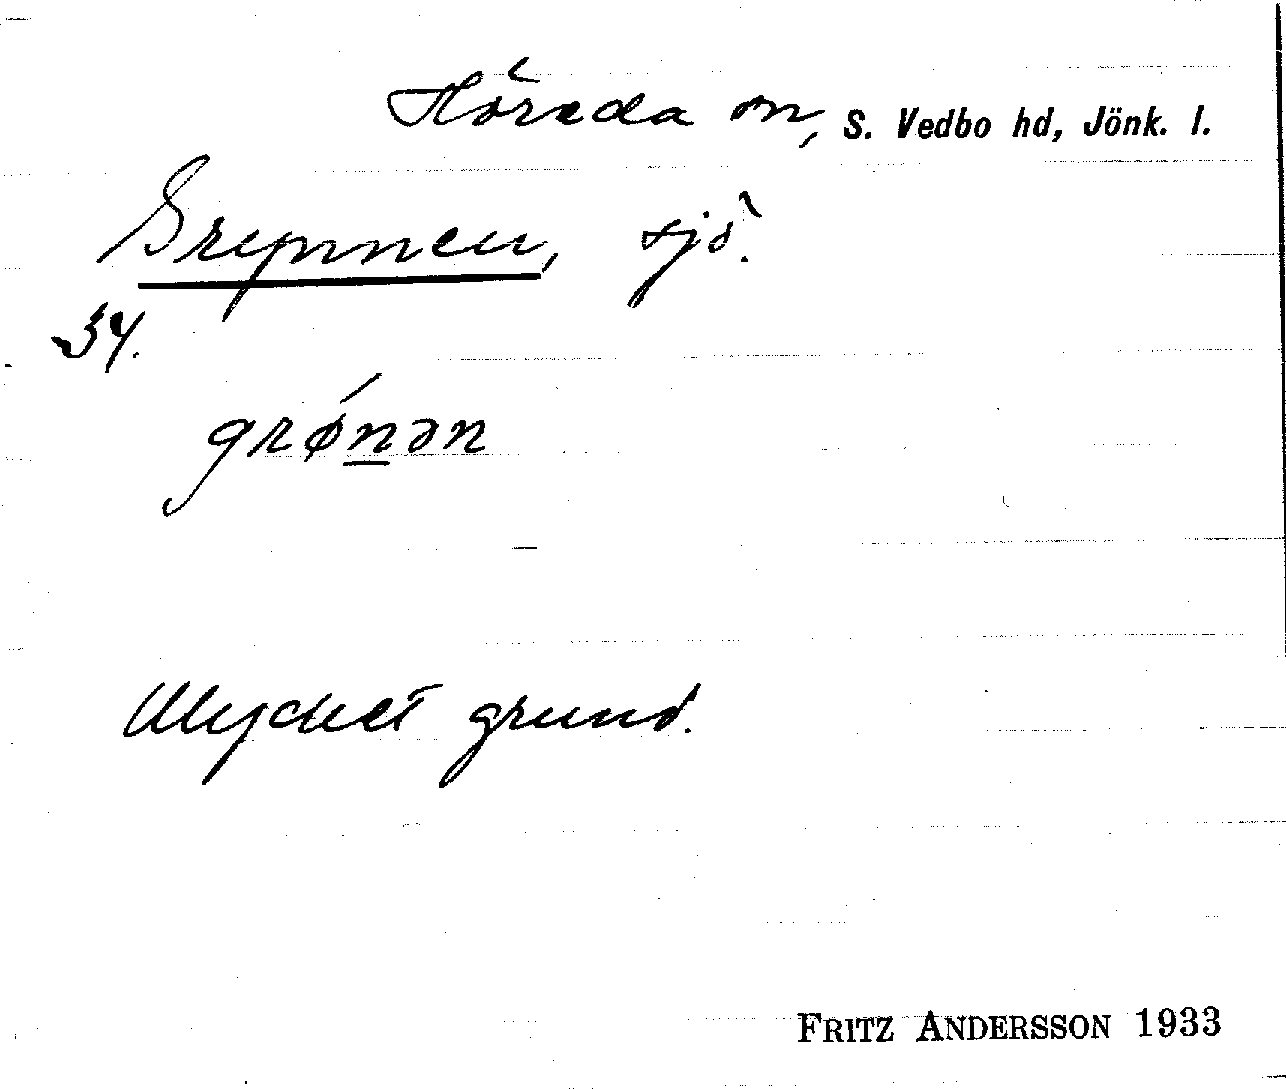 Höreda sn, S. Vedbo hd, Jönk. l.
Grynnen, sjö.
34.
grǿn̲ən
Mycket grund.
FRITZ ANDERSSON 1933